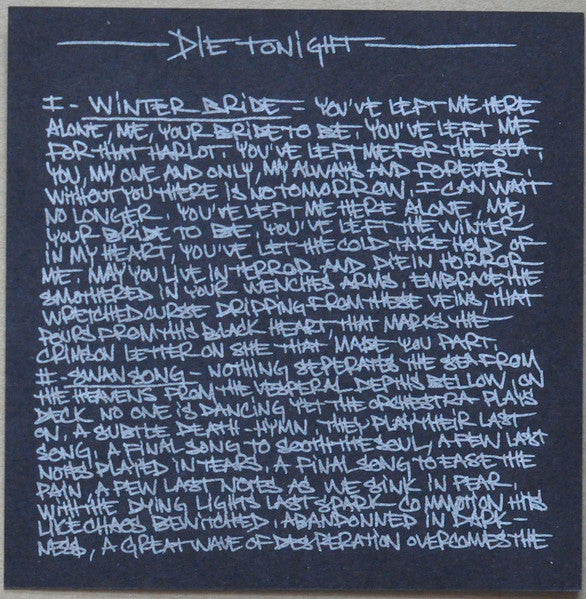 DIE TONIGHT
I - WINTER BRIDE - YOU'VE LEFT ME HERE
ALONE, ME, YOUR BRIDE TO BE. YOU'VE LEFT ME
FOR THAT HARLOT. YOU'VE LEFT ME FOR THE SEA.
YOU, MY ONE AND ONLY, MY ALWAYS AND FOREVER.
WITHOUT YOU THERE IS NO TOMORROW. I CAN WAIT
NO LONGER. YOU'VE LEFT ME HERE ALONE, ME,
YOUR BRIDE TO BE. YOU'VE LEFT THE WINTER
IN MY HEART, YOU'VE LET THE COLD TAKE HOLD OF
ME. MAY YOU LIVE IN TERROR AND DIE IN HORROR
SMOTHERED IN YOUR WENCHES ARMS. EMBRACE THE
WRETCHED CURSE DRIPPING FROM THESE VEINS, THAT
POURS FROM THIS BLACK HEART THAT MARKS THE
CRIMSON LETTER ON SHE THAT MADE YOU PART.
II - SWAN SONG - NOTHING SEPERATES THE SEA FROM
THE HEAVENS FROM THE VESPERAL DEPTHS BELLOW, ON
DECK NO ONE IS DANCING YET THE ORCHESTRA PLAYS
ON, A SUBTLE DEATH-HYMN. THEY PLAY THEIR LAST
SONG, A FINAL SONG TO SOOTH THE SOUL, A FEW LAST
NOTES PLAYED IN TEARS, A FINAL SONG TO EASE THE
PAIN A FEW LAST NOTES AS WE SINK IN FEAR.
WITH THE DYING LIGHTS LAST SPARK COMMOTION HITS
LIKE CHAOS BEWITCHED. ABANDONNED IN DARK-
NESS, A GREAT WAVE OF DESPERATION OVERCOMES THE